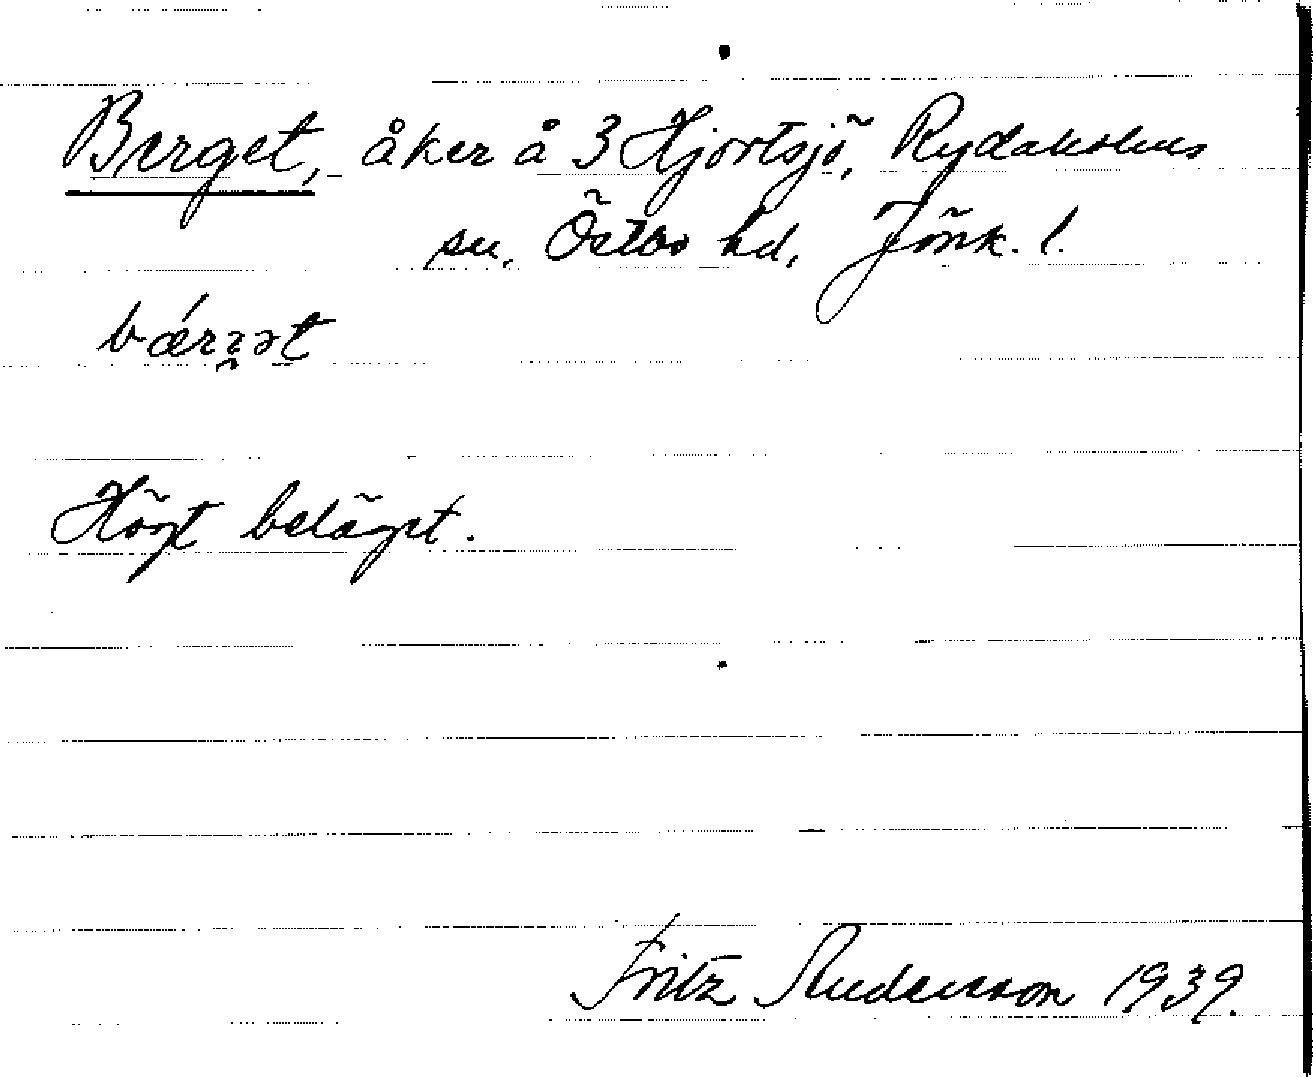 Berget, åker å 3 Hjortsjö, Rydaholms
sn, Östbo hd, Jönk. l.
Högt beläget.
Fritz Andersson 1939.